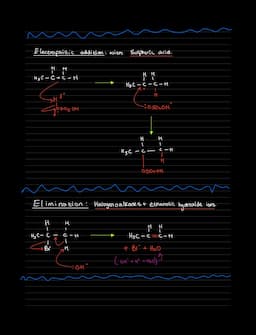 Electrophilic addition: with Sulphuric acid
H H
H₃C – C – C – H
H H
H₃C – C – C – H
H
H H
H₃C – C – C – H
H
Elimination: Halogenoalkanes + ethanolic hydroxide ions
H H
H₃C – C – C – H
Br H
:OH⁻
H H
H₃C – C = C – H
+ Br⁻ + H₂O